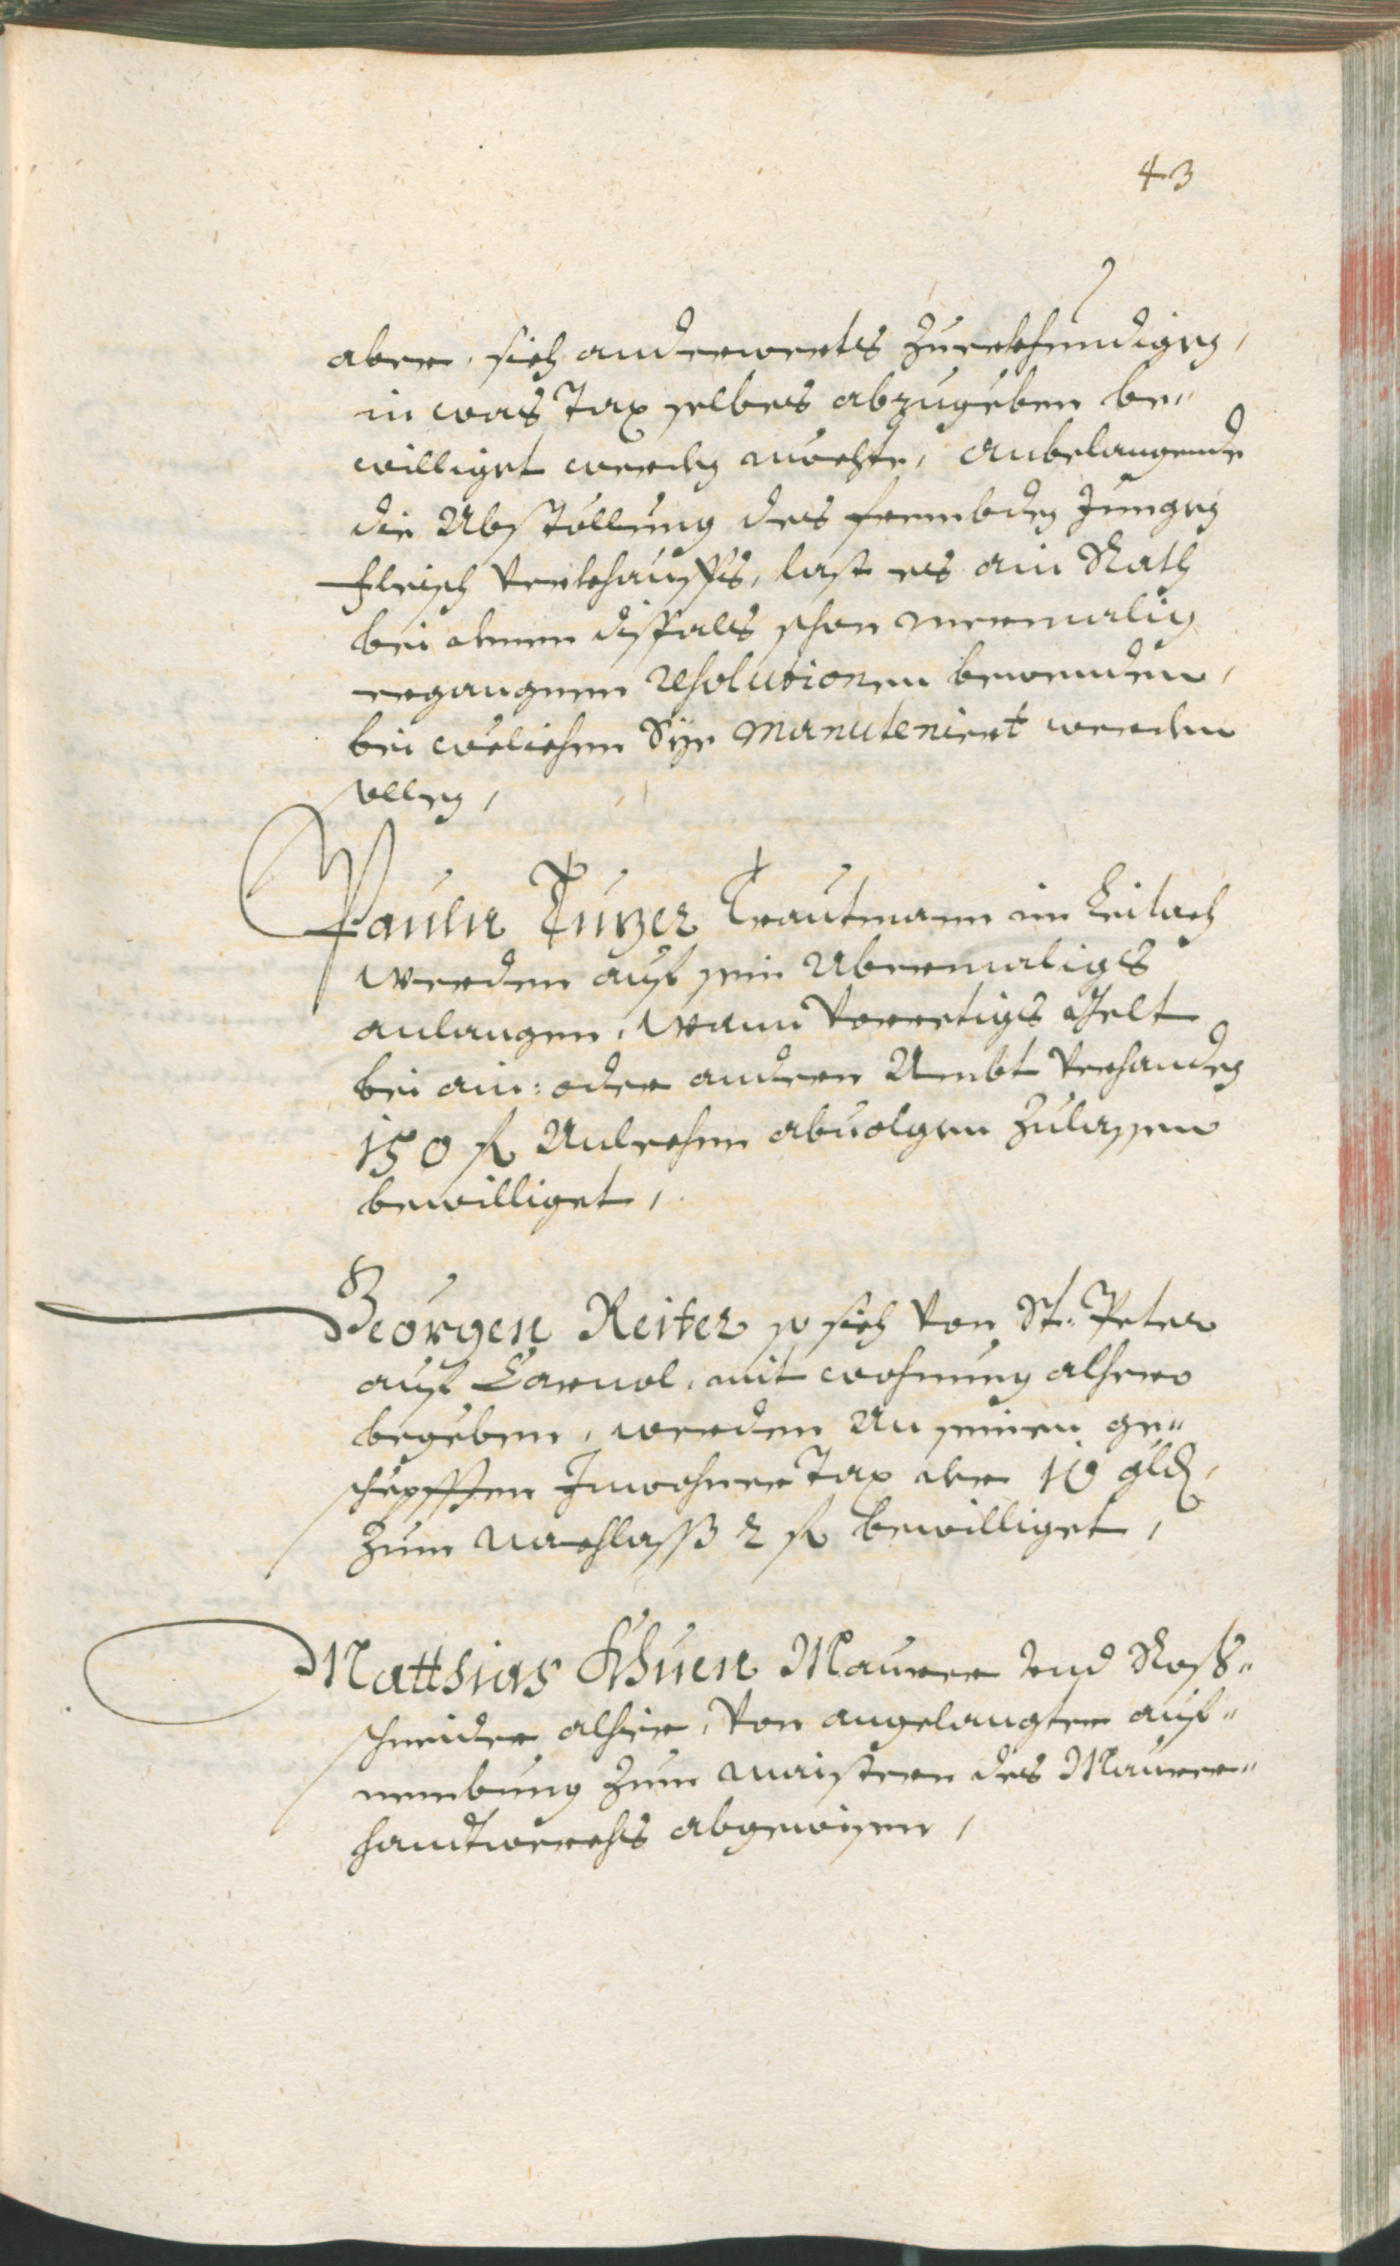 43
aber, sich anderwerts zuerkhundigen,
in was Tax selbes abzugeben be-
williget werden mechte, anbelangende
die Abstöllung des frembden Jungen
Fleisch verkhauffs, last es ain Rath
bei denen dissfals schon mermalig
ergangnen resolutionen bewenden,
bei welichen Sye manuteniert werden
sollen,
Pauln Tuzer Trautmann im Leitach
werden auf sein Abermaliges
anlangen, wann vorretigs Gelt
bei ain: oder andern Ambt verhanden
150 fl Anlechen abuolgen zulassen
bewilliget,
Georgen Reiter so sich von St. Peter
auf Carnol, mit wohnung alhero
begeben, werden An seinen ge-
schepfften Inwohner Tax der 10 gld,
zum nachlaß 2 fl bewilliget,
Matthias Khuen Maurer vnd Roß-
schneider alhier, von angelangter auf-
nembung zum maistern des Maurer-
handtwerchs abgewisen,